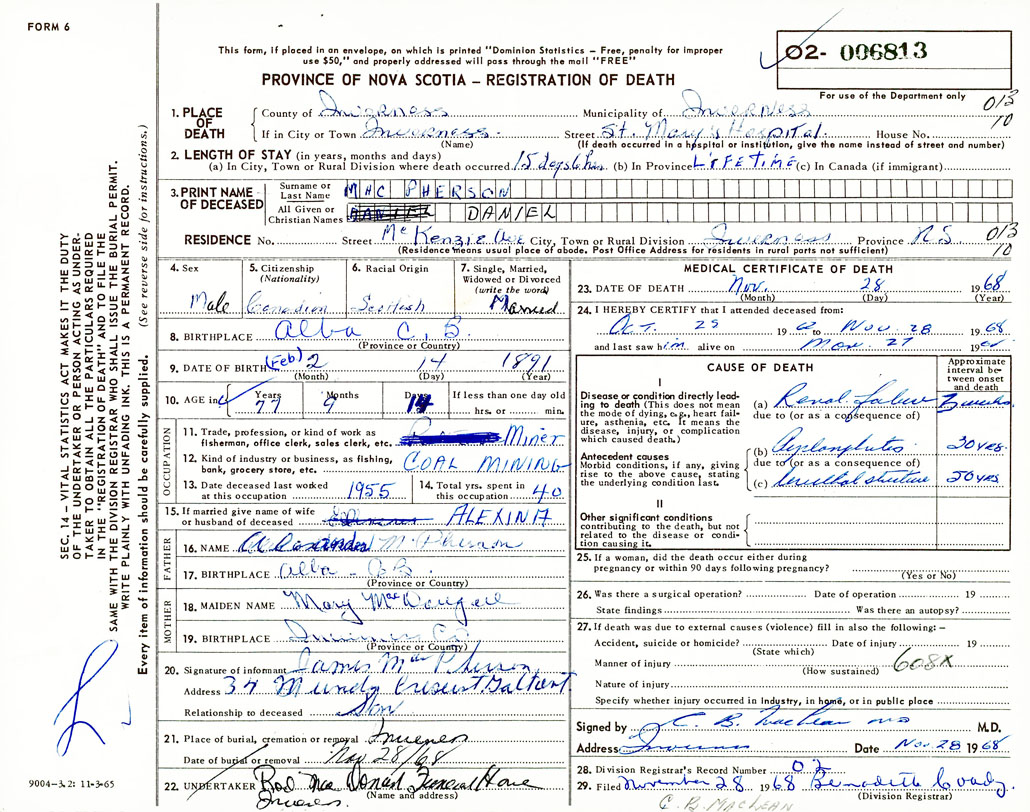 FORM 6
This form, if placed in an envelope, on which is printed "Dominion Statistics – Free, penalty for improper
use $50," and properly addressed will pass through the mail "FREE"
02- 006813
For use of the Department only
PROVINCE OF NOVA SCOTIA – REGISTRATION OF DEATH
013
10
1. PLACE OF DEATH
County of Inverness Municipality of Inverness
If in City or Town Inverness Street St. Mary's Hospital House No.
(Name) (If death occurred in a hospital or institution, give the name instead of street and number)
2. LENGTH OF STAY (in years, months and days)
(a) In City, Town or Rural Division where death occurred 15 days 6 hrs. (b) In Province LIFETIME (c) In Canada (if immigrant)
3. PRINT NAME OF DECEASED
Surname or Last Name MAC PHERSON
All Given or Christian Names DANIEL
RESIDENCE No. Street McKenzie Ave City, Town or Rural Division Inverness Province N.S 013
(Residence means usual place of abode. Post Office Address for residents in rural ports not sufficient) 10
4. Sex Male
5. Citizenship (Nationality) Canadian
6. Racial Origin Scottish
7. Single, Married, Widowed or Divorced (write the word) Married
8. BIRTHPLACE Alba C.B.
(Province or Country)
9. DATE OF BIRTH (Feb) 2 14 1891
(Month) (Day) (Year)
10. AGE in Years Months Days If less than one day old
77 9 14 hrs. or min.
OCCUPATION
11. Trade, profession, or kind of work as fisherman, office clerk, sales clerk, etc. Miner
12. Kind of industry or business, as fishing, bank, grocery store, etc. COAL MINING
13. Date deceased last worked at this occupation 1955
14. Total yrs. spent in this occupation 40
15. If married give name of wife or husband of deceased ALEXINA
FATHER
16. NAME McPherson
17. BIRTHPLACE Alba - C.B.
(Province or Country)
MOTHER
18. MAIDEN NAME Mary MacDougall
19. BIRTHPLACE Inverness Co
(Province or Country)
20. Signature of informant James MacPherson
Address 34 Mundy Cresent Galt Ont
Relationship to deceased Son
21. Place of burial, cremation or removal Inverness
Date of burial or removal Nov 28/68
22. UNDERTAKER Rod MacDonald Funeral Home
Inverness. (Name and address)
MEDICAL CERTIFICATE OF DEATH
23. DATE OF DEATH Nov. 28 1968
(Month) (Day) (Year)
24. I HEREBY CERTIFY that I attended deceased from:
Oct. 29 19 to Nov. 28 1968
and last saw him alive on Nov. 27 19
CAUSE OF DEATH
Approximate interval between onset and death
I
Disease or condition directly leading to death (This does not mean the mode of dying, e.g., heart failure, asthenia, etc. It means the disease, injury, or complication which caused death.)
(a) Renal failure 3 weeks
due to (or as a consequence of)
Antecedent causes
Morbid conditions, if any, giving rise to the above cause, stating the underlying condition last.
(b) 30 yrs.
due to (or as a consequence of)
(c) urethral stricture 50 yrs
II
Other significant conditions
contributing to the death, but not related to the disease or condition causing it.
25. If a woman, did the death occur either during
pregnancy or within 90 days following pregnancy?
(Yes or No)
26. Was there a surgical operation? Date of operation 19
State findings Was there an autopsy?
27. If death was due to external causes (violence) fill in also the following: –
Accident, suicide or homicide? Date of injury 19
(State which)
Manner of injury 608X
(How sustained)
Nature of injury
Specify whether injury occurred in Industry, in home, or in public place
Signed by C. B. MacLean M.D.
Address Inverness Date Nov 28 1968
28. Division Registrar's Record Number 02
29. Filed November 28 1968 Benedetta Coady
(Division Registrar)
C. B. MACLEAN
SEC. 14 – VITAL STATISTICS ACT MAKES IT THE DUTY
OF THE UNDERTAKER OR PERSON ACTING AS UNDER-
TAKER TO OBTAIN ALL THE PARTICULARS REQUIRED
IN THE "REGISTRATION OF DEATH" AND TO FILE THE
SAME WITH THE DIVISION REGISTRAR WHO SHALL ISSUE THE BURIAL PERMIT.
WRITE PLAINLY WITH UNFADING INK. THIS IS A PERMANENT RECORD.
Every item of information should be carefully supplied. (See reverse side for instructions.)
9004-3.2: 11-3-65